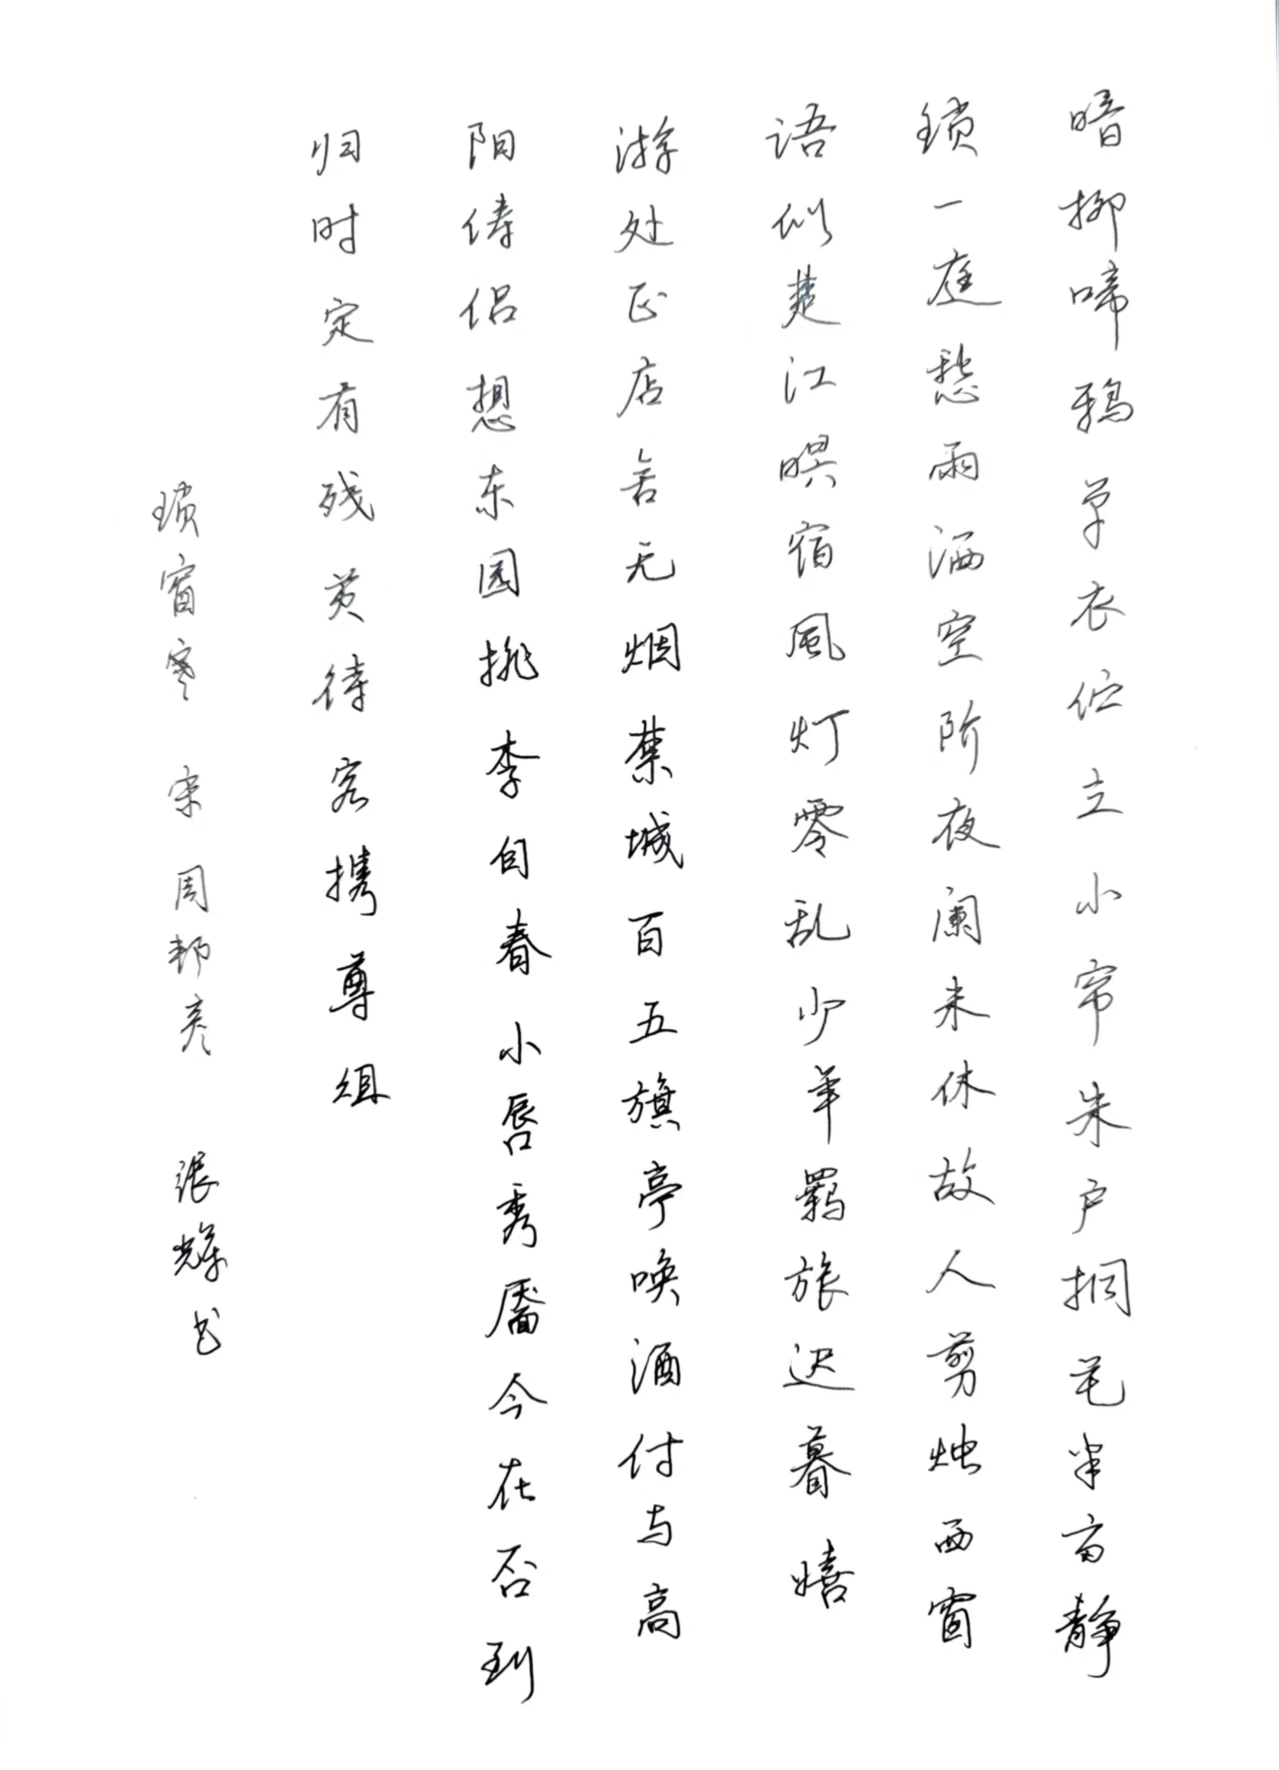 暗柳啼鸦单衣伫立小帘朱户桐花半亩静
锁一庭愁雨洒空阶夜阑未休故人剪烛西窗
语似楚江暝宿風灯零乱少年羁旅迟暮嬉
游处正店舍无烟禁城百五旗亭唤酒付与高
阳俦侣想东园桃李自春小唇秀靥今在否到
归时定有残英待客携尊俎
锁窗寒 宋 周邦彦 张辉书